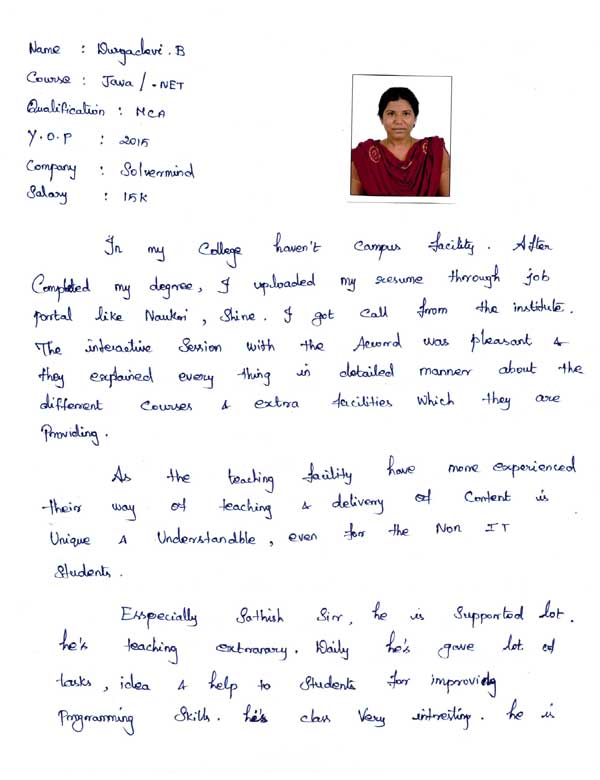 Name : Durgadevi . B
Course : Java / . NET
Qualification : MCA
Y.O.P : 2015
Company : Solvermind
Salary : 15K
In my College haven't Campus facility . After
Completed my degree, I uploaded my resume through job
portal like Naukri , Shine . I got call from the institute .
The interactive Session with the Accord was pleasant &
they explained every thing in detailed manner about the
different Courses & extra facilities which they are
Providing .
As the teaching facility have more experienced
their way of teaching & delivery of Content is
Unique & Understandble , even for the Non IT
Students .
Esspecially Sathish Sir , he is Supported lot .
he's teaching extrarary . Daily he's gave lot of
tasks , idea & help to Students for improving
Programming Skills . he's class Very intresting . he is